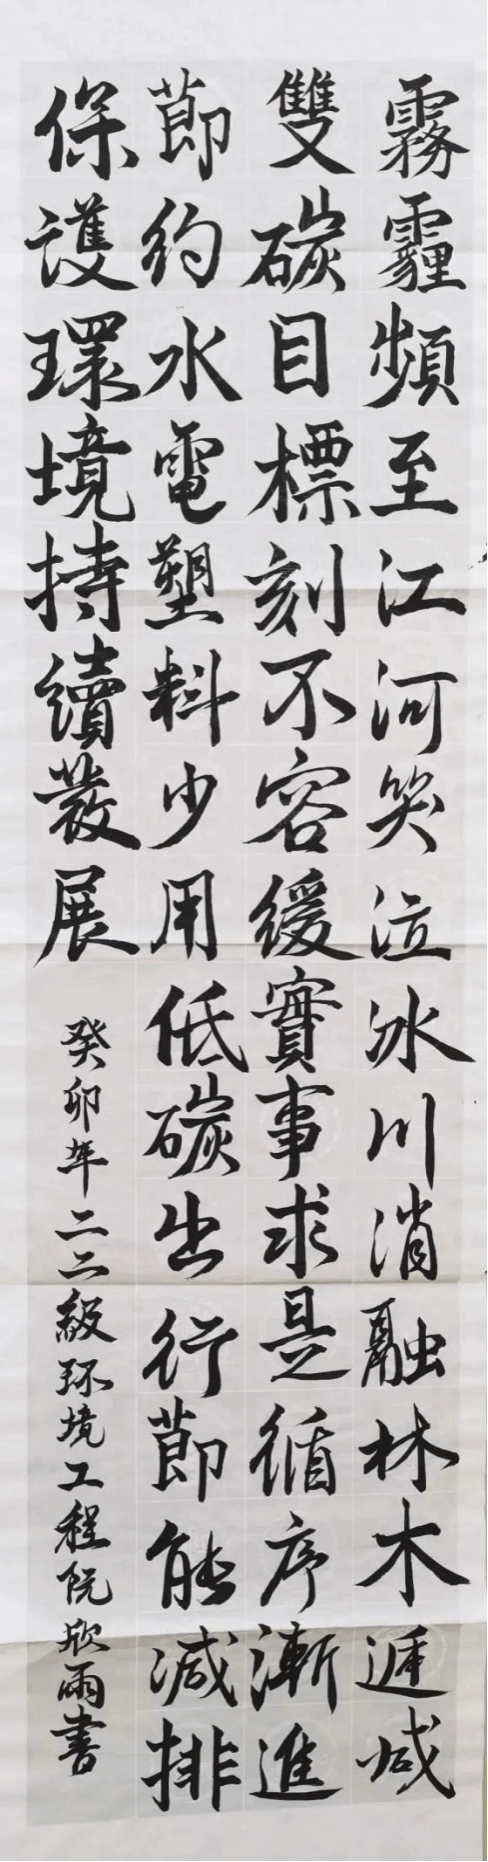 霧霾頻至江河哭泣冰川消融林木遞減
雙碳目標刻不容緩實事求是循序漸進
節約水電塑料少用低碳出行節能減排
保護環境持續發展
癸卯年二二級环境工程阮欣雨書